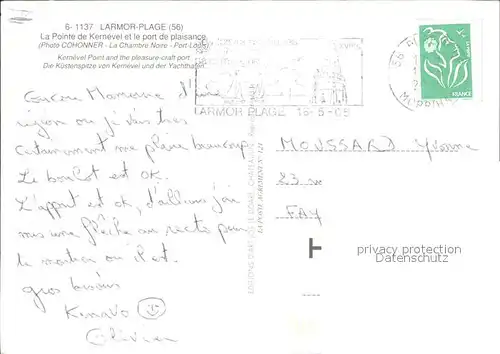 6- 1137 LARMOR-PLAGE (56)
La Pointe de Kernével et le port de plaisance
(Photo COHONNER - La Chambre Noire - Port-Louis)
Kernével Point and the pleasure-craft port
Die Küstenspitze von Kernével und der Yachthafen
LARMOR PLAGE 16-5-05
56
FRANCE
Coucou Mamanne d'une
région où je vais très
certainement me plaire beaucoup.
Le boulot est OK.
L'appart est ok, d'ailleurs j'ai
mis une flèche au recto pour
te montrer où il est.
gros bisous
Kenavo
Olivier
MOUSSARD Yvonne
23
FAY
privacy protection
Datenschutz